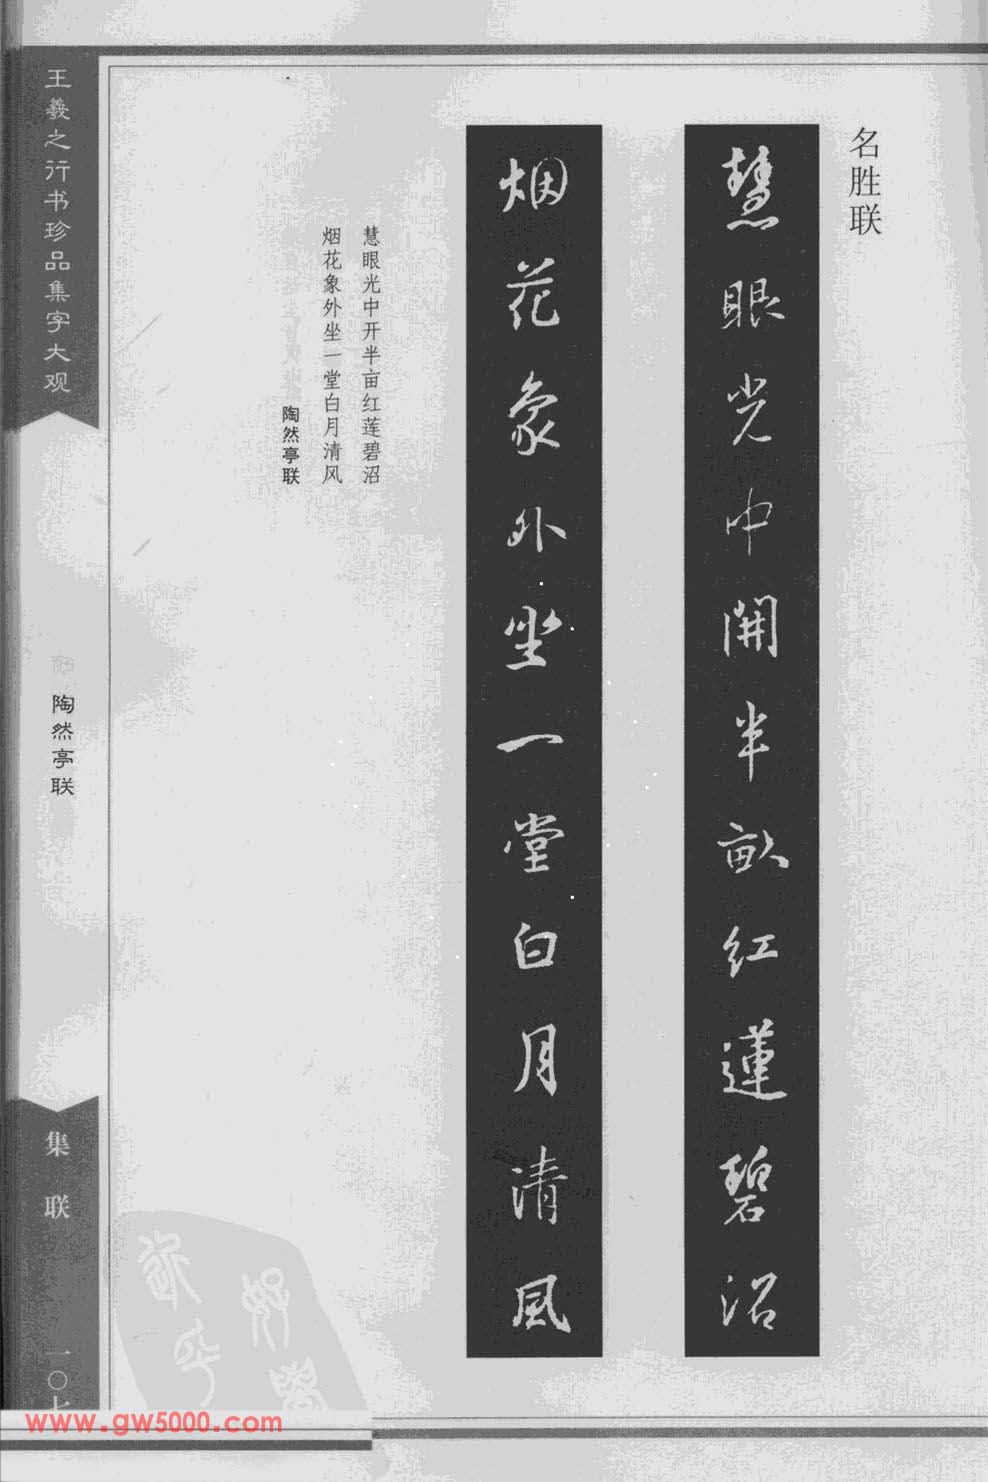 名胜联
慧眼光中開半畝红蓮碧沼
烟花象外坐一堂白月清風
慧眼光中开半亩红莲碧沼
烟花象外坐一堂白月清风
陶然亭联
王羲之行书珍品集字大观
陶然亭联
集联
一〇七
www.gw5000.com